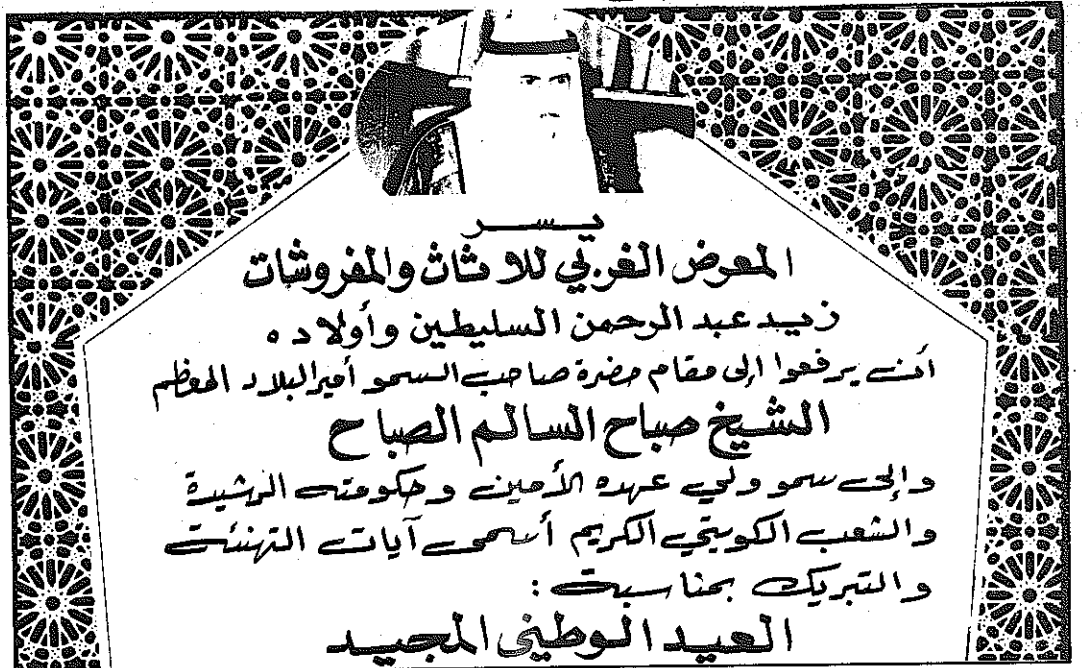 يسر
المعرض الغربي للاثاث والمفروشات
زيد عبد الرحمن السليطين وأولاده
أن يرفعوا إلى مقام حضرة صاحب السمو أمير البلاد المعظم
الشيخ صباح السالم الصباح
وإلى سمو ولي عهده الأمين وحكومته الرشيدة
والشعب الكويتي الكريم أسمى آيات التهنئة
والتبريك بمناسبة :
العيد الوطني المجيد